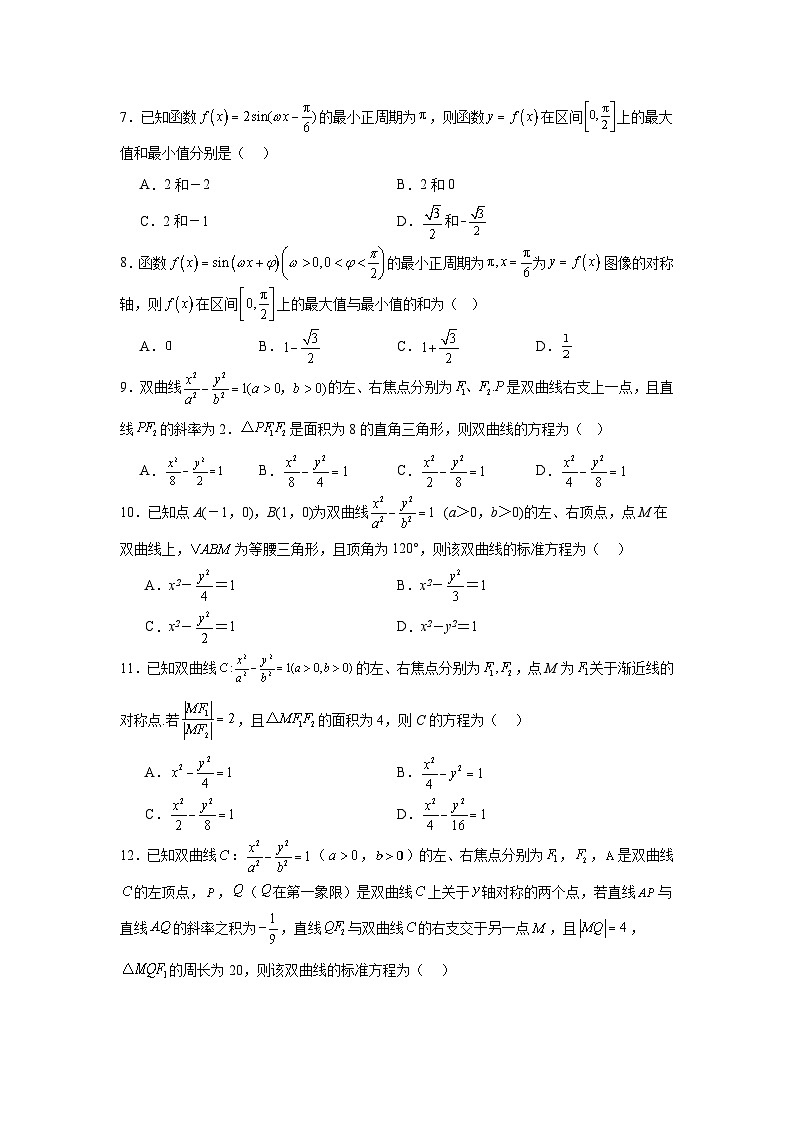 7．已知函数 f(x) = 2sin(ωx − π/6) 的最小正周期为 π，则函数 y = f(x) 在区间 [0, π/2] 上的最大
值和最小值分别是（ ）
A．2 和－2 B．2 和 0
C．2 和－1 D．√3/2 和 −√3/2
8．函数 f(x) = sin(ωx + φ)(ω > 0, 0 < φ < π/2) 的最小正周期为 π, x = π/6 为 y = f(x) 图像的对称
轴，则 f(x) 在区间 [0, π/2] 上的最大值与最小值的和为（ ）
A．0 B．1 − √3/2 C．1 + √3/2 D．1/2
9．双曲线 x²/a² − y²/b² = 1(a > 0，b > 0) 的左、右焦点分别为 F₁、F₂.P 是双曲线右支上一点，且直
线 PF₂ 的斜率为 2．△PF₁F₂ 是面积为 8 的直角三角形，则双曲线的方程为（ ）
A．x²/8 − y²/2 = 1 B．x²/8 − y²/4 = 1 C．x²/2 − y²/8 = 1 D．x²/4 − y²/8 = 1
10．已知点 A(－1，0)，B(1，0)为双曲线 x²/a² − y²/b² = 1 (a＞0，b＞0)的左、右顶点，点 M 在
双曲线上，∨ABM 为等腰三角形，且顶角为 120°，则该双曲线的标准方程为（ ）
A．x²－y²/4＝1 B．x²－y²/3＝1
C．x²－y²/2＝1 D．x²－y²＝1
11．已知双曲线 C : x²/a² − y²/b² = 1(a > 0, b > 0) 的左、右焦点分别为 F₁, F₂，点 M 为 F₁关于渐近线的
对称点.若 |MF₁|/|MF₂| = 2，且△MF₁F₂ 的面积为 4，则 C 的方程为（ ）
A．x² − y²/4 = 1 B．x²/4 − y² = 1
C．x²/2 − y²/8 = 1 D．x²/4 − y²/16 = 1
12．已知双曲线 C：x²/a² − y²/b² = 1（a > 0，b > 0）的左、右焦点分别为 F₁，F₂，A 是双曲线
C 的左顶点，P，Q（Q 在第一象限）是双曲线 C 上关于 y 轴对称的两个点，若直线 AP 与
直线 AQ 的斜率之积为 −1/9，直线 QF₂ 与双曲线 C 的右支交于另一点 M，且 |MQ| = 4，
△MQF₁ 的周长为 20，则该双曲线的标准方程为（ ）